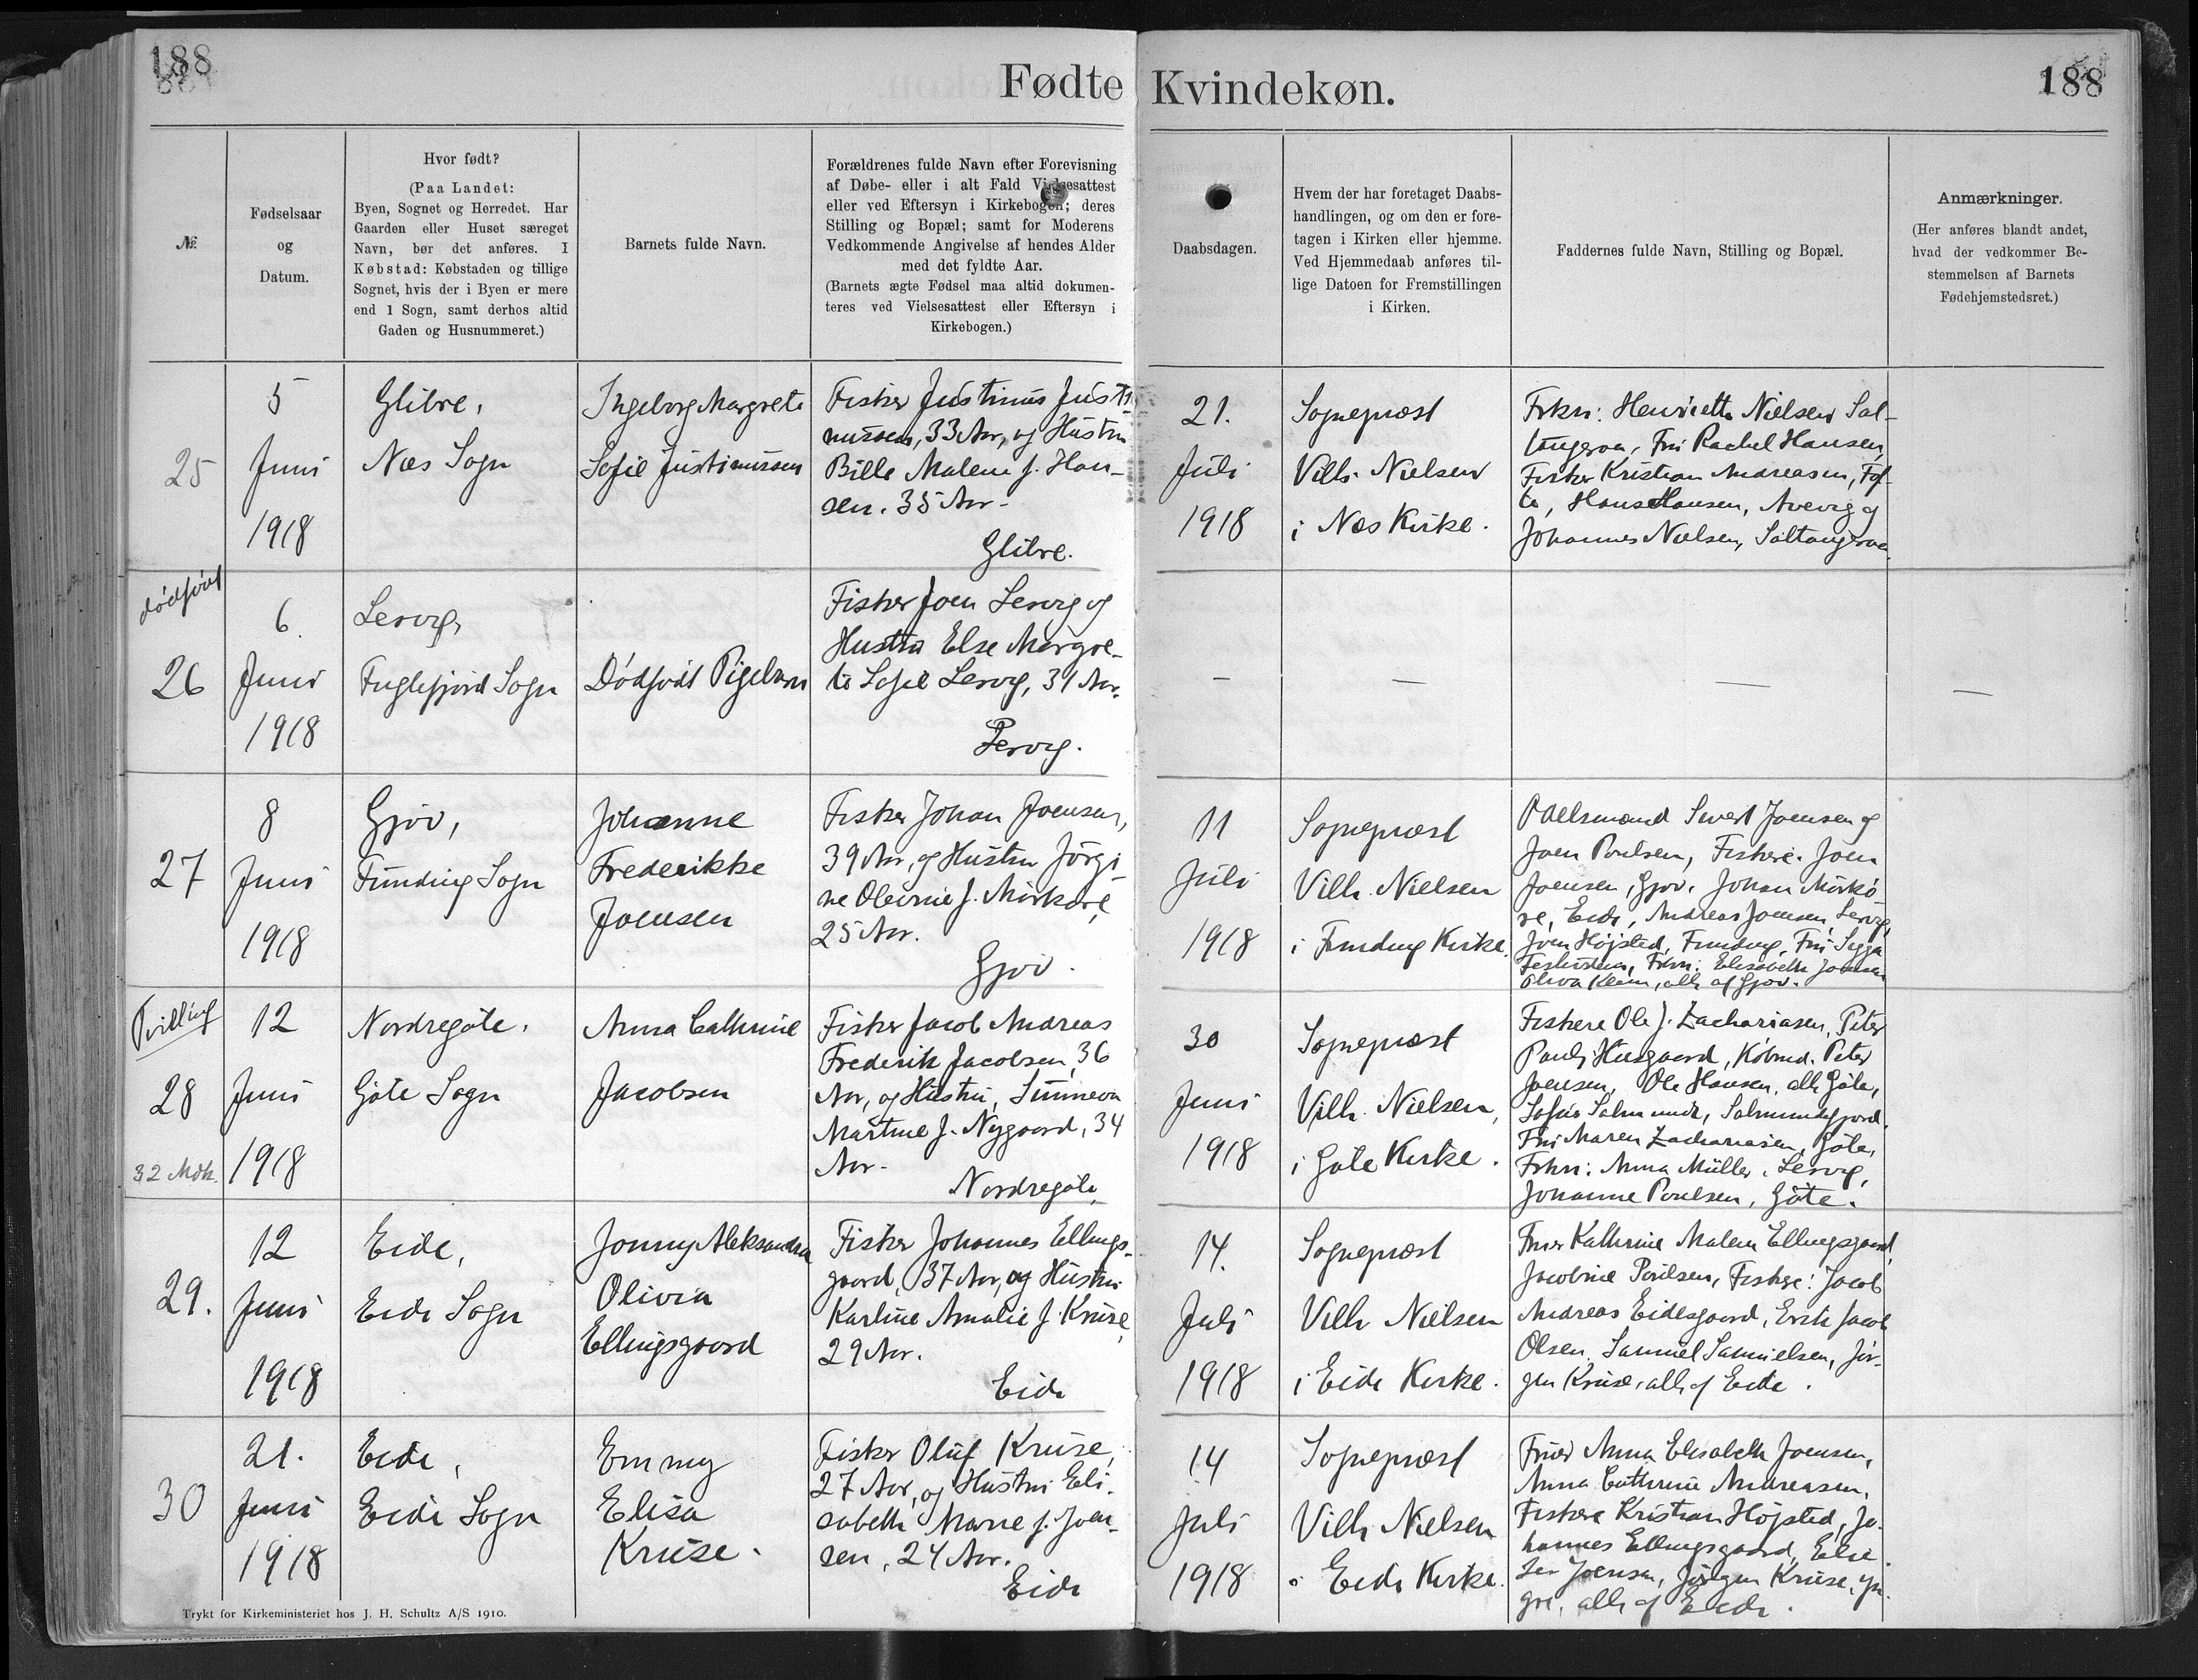 188
Fødte
Kvindekøn.
188
№
Fødselsaar
og
Datum.
Hvor født?
(Paa Landet:
Byen, Sognet og Herredet. Har
Gaarden eller Huset særeget
Navn, bør det anføres. I
Købstad: Købstaden og tillige
Sognet, hvis der i Byen er mere
end 1 Sogn, samt derhos altid
Gaden og Husnummeret.)
Barnets fulde Navn.
Forældrenes fulde Navn efter Forevisning
af Døbe- eller i alt Fald Vielsesattest
eller ved Eftersyn i Kirkebogen; deres
Stilling og Bopæl; samt for Moderens
Vedkommende Angivelse af hendes Alder
med det fyldte Aar.
(Barnets ægte Fødsel maa altid dokumen-
teres ved Vielsesattest eller Eftersyn i
Kirkebogen.)
Daabsdagen.
Hvem der har foretaget Daabs-
handlingen, og om den er fore-
tagen i Kirken eller hjemme.
Ved Hjemmedaab anføres til-
lige Datoen for Fremstillingen
i Kirken.
Faddernes fulde Navn, Stilling og Bopæl.
Anmærkninger.
(Her anføres blandt andet,
hvad der vedkommer Be-
stemmelsen af Barnets
Fødehjemstedsret.)
25
5
Juni
1918
Glibre,
Næs Sogn
Ingeborg Margrete
Sofie Justinussen
Fisker Justinus Justi
nussen, 33 Aar, og Hustru
Bille Malene f. Han-
sen. 35 Aar-
Glibre.
21.
Juli
1918
Sognepræst
Vilh. Nielsen
i Næs Kirke.
Frkn: Henriette Nielsen Sal-
tangeraa, Fru Rachel Hansen,
Fisker Kristian Andreasen, Tof-
te, Hans Hansen, Avevig og
Johannes Nielsen, Saltangeraa
dødfødt
26
6.
Juni
1918
Lervig,
Fuglefjord Sogn
Dødfødt Pigebarn
Fisker Joen Lervig og
Hustru Else Margre-
te Sofie Lervig, 31 Aar.
Lervig.
-
—
—
—
27
8
Juni
1918
Gjov,
Funding Sogn
Johanne
Frederikke
Joensen
Fisker Johan Joensen,
39 Aar, og Hustru Jørgi
ne Olevine f. Mørkøre,
25 Aar.
Gjov.
11
Juli
1918
Sognepræst
Vilh. Nielsen
i Funding Kirke.
Sivert Joensen og
Joen Poulsen, Fiskere: Joen
Joensen, Gjov, Johan Mørkø
re, Eide, Andreas Joensen, Lervig,
Joen Højsted, Funding, Fru Sigga
Frkn: Elisabeth Joensen
alle af Gjov.
Tvilling
28
32 Mdk.
12
Juni
1918
Nordregøte,
Gøte Sogn
Anna Cathrine
Jacobsen
Fisker Jacob Andreas
Frederik Jacobsen, 36
Aar, og Hustru, Sunneva
Martine f. Nygaard, 34
Aar-
Nordregøte,
30
Juni
1918
Sognepræst
Vilh. Nielsen,
i Gøte Kirke.
Fiskere Ole J. Zachariasen, Peter
Pauli Husgaard, Købmd. Peter
Joensen, Ole Hansen, alle Gøte,
Fru Maren Zachariasen, Gøte,
Frkn: Anna Müller, Lervig,
Johanne Poulsen, Gøte.
29.
12
Juni
1918
Eide,
Eide Sogn
Jonny Aleksandra
Olivia
Ellingsgaard
Fisker Johannes Ellings-
gaard, 37 Aar, og Hustru
Karline Amalie f. Kruse,
29 Aar.
Eide
14.
Juli
1918
Sognepræst
Vilh Nielsen
i Eide Kirke.
Fruer Kathrine Malene Ellingsgaard,
Jacobine Poulsen, Fiskere: Jacob
Andreas Eidesgaard, Erik Jacob
Olsen, Samuel Samuelsen, Jør-
gen Kruse, alle af Eide.
30
21.
Juni
1918
Eide,
Eide Sogn
Emmy
Elisa
Kruse.
Fisker Oluf Kruse,
27 Aar, og Hustru Eli-
sabeth Marie f. Joen-
sen, 24 Aar.
Eide
14
Juli
1918
Sognepræst
Vilh Nielsen
i Eide Kirke.
Fruer Anna Elisabeth Joensen,
Anna Cathrine Andreasen,
Fiskere Kristian Højsted, Jo-
hannes Ellingsgaard,
Joensen, Jørgen Kruse, yn-
gre, alle af Eide.
Trykt for Kirkeministeriet hos J. H. Schultz A/S 1910.